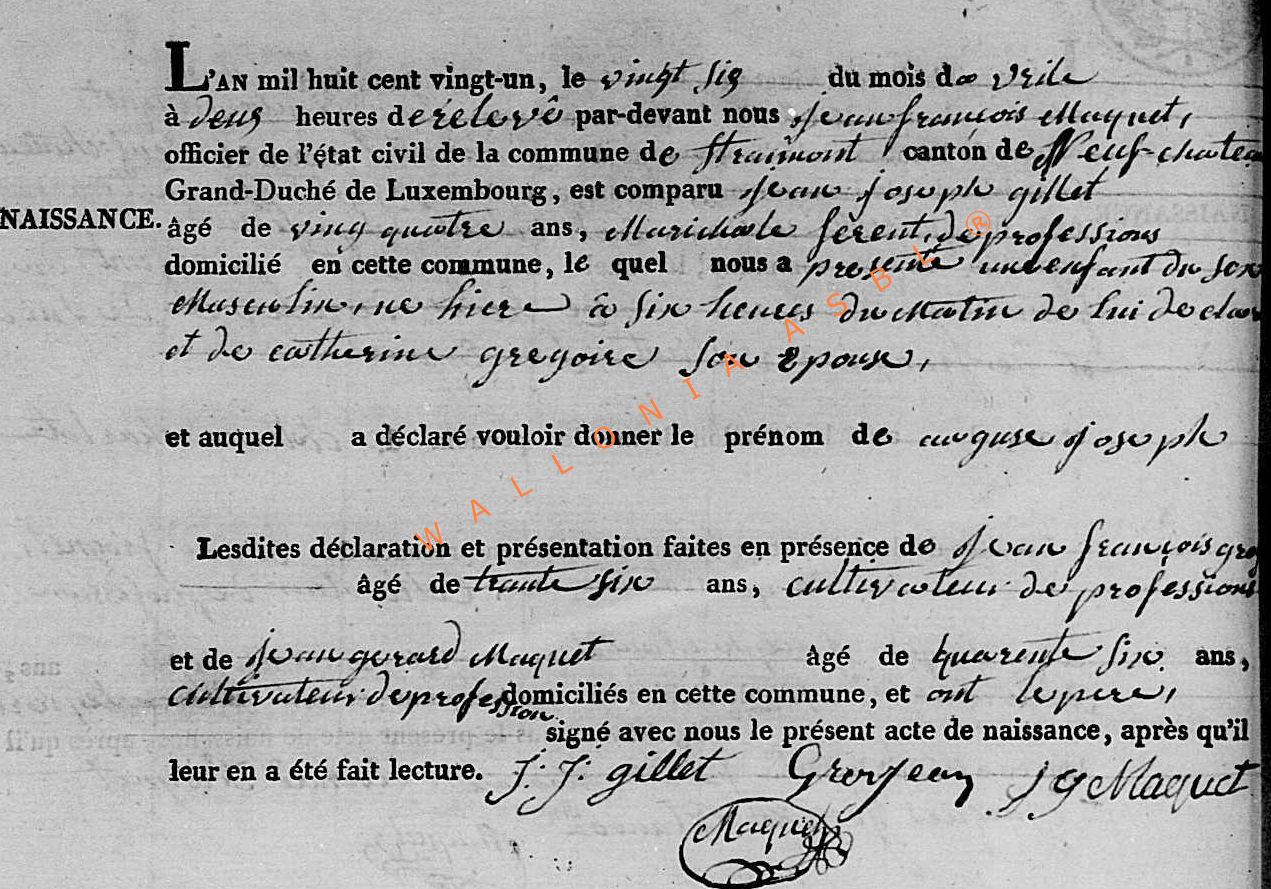 L'AN mil huit cent vingt-un, le vingt six du mois d'avrile
à deux heures de rélevé par-devant nous jean françois Maquet,
officier de l'état civil de la commune de straimont canton de Neuf-chateau
Grand-Duché de Luxembourg, est comparu jean joseph gillet
NAISSANCE.
âgé de ving quatre ans, Marichale ferent, de professions
domicilié en cette commune, le quel nous a presenté un enfant du sex
Masculin, ne hier à six heures du Matin de lui declar
et de catherine gregoire son epouse,
et auquel a déclaré vouloir donner le prénom de auguse joseph
Lesdites déclaration et présentation faites en présence de jean françois gro
âgé de trante six ans, cultivateur de professions
et de jean gerard Maquet âgé de quarente six ans,
cultivateur de profession domiciliés en cette commune, et ont le pere,
signé avec nous le présent acte de naissance, après qu'il
leur en a été fait lecture. J: J: gillet Grosjean J G Maquet
Maquet
WALLONIA ASBL ®